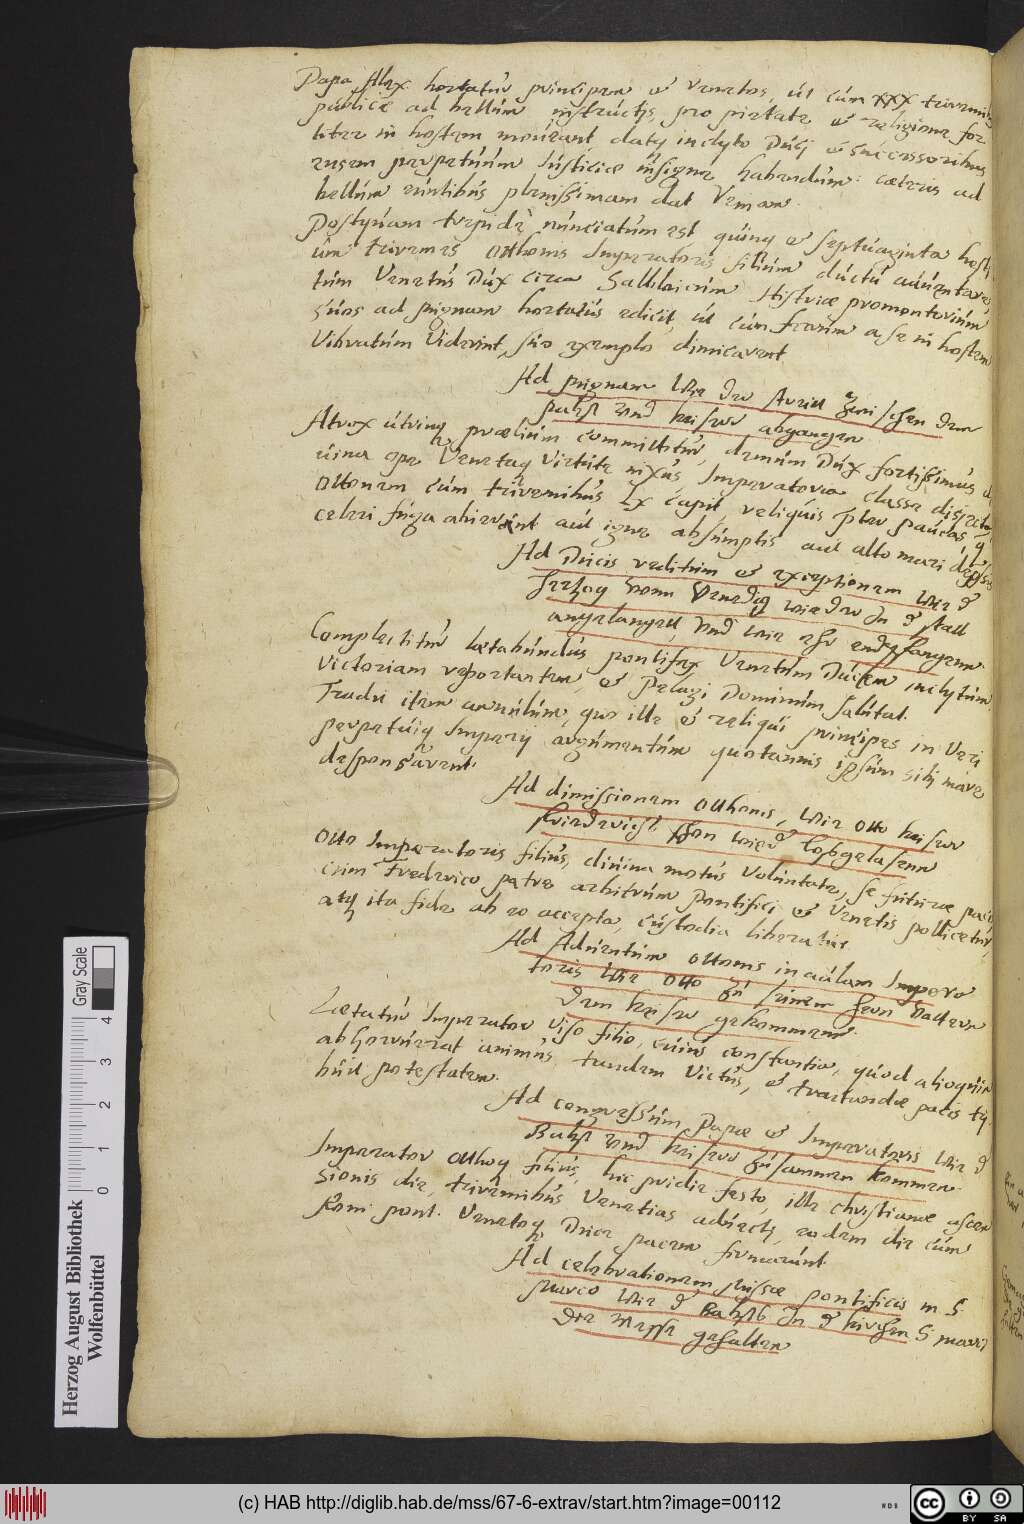 Papa Alex hortatur principem et Venetos, ut cum xxx triremib
publicè ad bellum instructis, pro pietate et religione for
titer in hostem moveant, datq inclyto Duci et successoribus
ensem perpetuum Justiciae insigne habendum: caeteris ad
bellum euntibus plenissimam dat Veniam.
Postquam trepidè nunciatum est quinq et septuaginta hosti
um triremes Otthonis Imperatoris filium ductu adventare,
tum Venetus Dux circa Salbloicum Histriae promontorium
suos ad pugnam hortatus edicit, ut cum ferrum a se in hostem
Vibratum Viderint, suo exemplo dimicarent
Ad pugnam Wie der Streit zwischen dem
pabst und keiser abgangen
Atrox utrinq praelium committitur, demum Dux fortissimus d
uina ope Venetaq Virtute nixus, Imperatoria classe disiecta,
Ottonem cum triremibus lx capit, reliquis pter paucas, q
celeri fuga abierunt aut igne absumptis aut alto mari depssis
Ad Ducis reditum et exceptionem wie d
Herzog vonn Venedig wieder In d statt
angelanget, vnd wie ehr endpfangenn
Complectitur laetabundus pontifex Venetum Ducem inclytum
Victoriam reportantem, et Pelagi Dominum salutat.
Tradit item annulum, quo ille et reliqui principes in Veri
perpetuiq Imperij argumentum quotannis ipsum sibi mare
desponsarent.
Ad dimissionem Otthonis, Wie Otto keiser
friderichs son wied losgelasenn
Otto Imperatoris filius, divina motus Voluntate, se futurae paci
cum Frederico patre arbitrum pontifici et Venetis pollicetur,
atq ita fide ab eo accepta, custodia liberatur.
Ad Adventum Ottonis in aulam Impera
toris Wie Otto zu seinem hern Vattern
dem keiser gekommenn.
Laetatur Imperator viso filio, cuius constantia, quod alioquin
abhorruerat animus, tandem Victus, et tractandae pacis tr
buit potestatem.
Ad congressum Papae et Imperatoris Wie d
Babst und keiser zusammen kommen.
Imperator Otthoq filius, hic pridie festo, ille christianae ascen
sionis die, triremibus Venetias advecti, eodem die cum
Rom: pont. Venetoq Duce pacem firmarunt.
Ad celebrationem Missae pontificis in S:
Marco Wie d Babst In d kirchen S Marci
die Messe gehalten
Herzog August Bibliothek
Wolfenbüttel
Gray Scale
0 1 2 3 4
(c) HAB http://diglib.hab.de/mss/67-6-extrav/start.htm?image=00112
WDB
cc BY SA